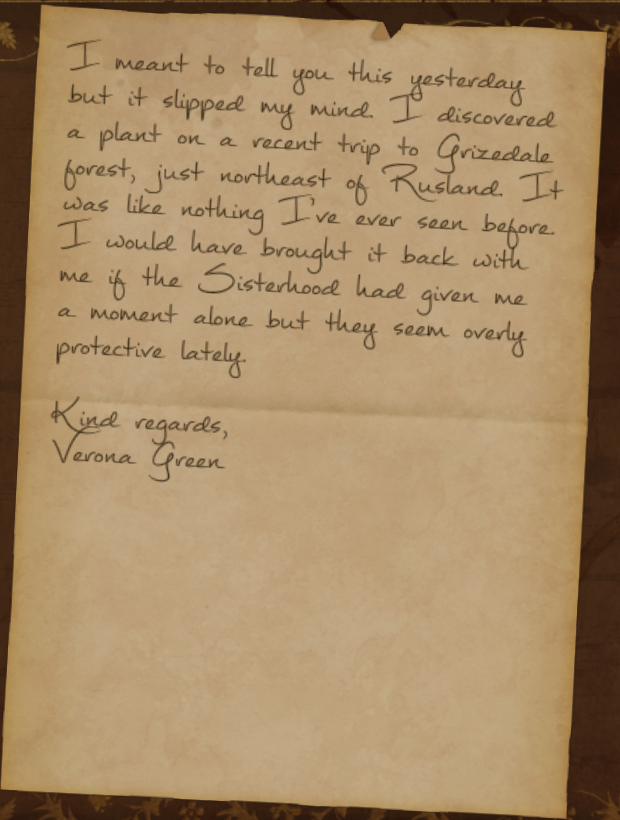 I meant to tell you this yesterday
but it slipped my mind. I discovered
a plant on a recent trip to Grizedale
forest, just northeast of Rusland. It
was like nothing I've ever seen before.
I would have brought it back with
me if the Sisterhood had given me
a moment alone but they seem overly
protective lately.
Kind regards,
Verona Green